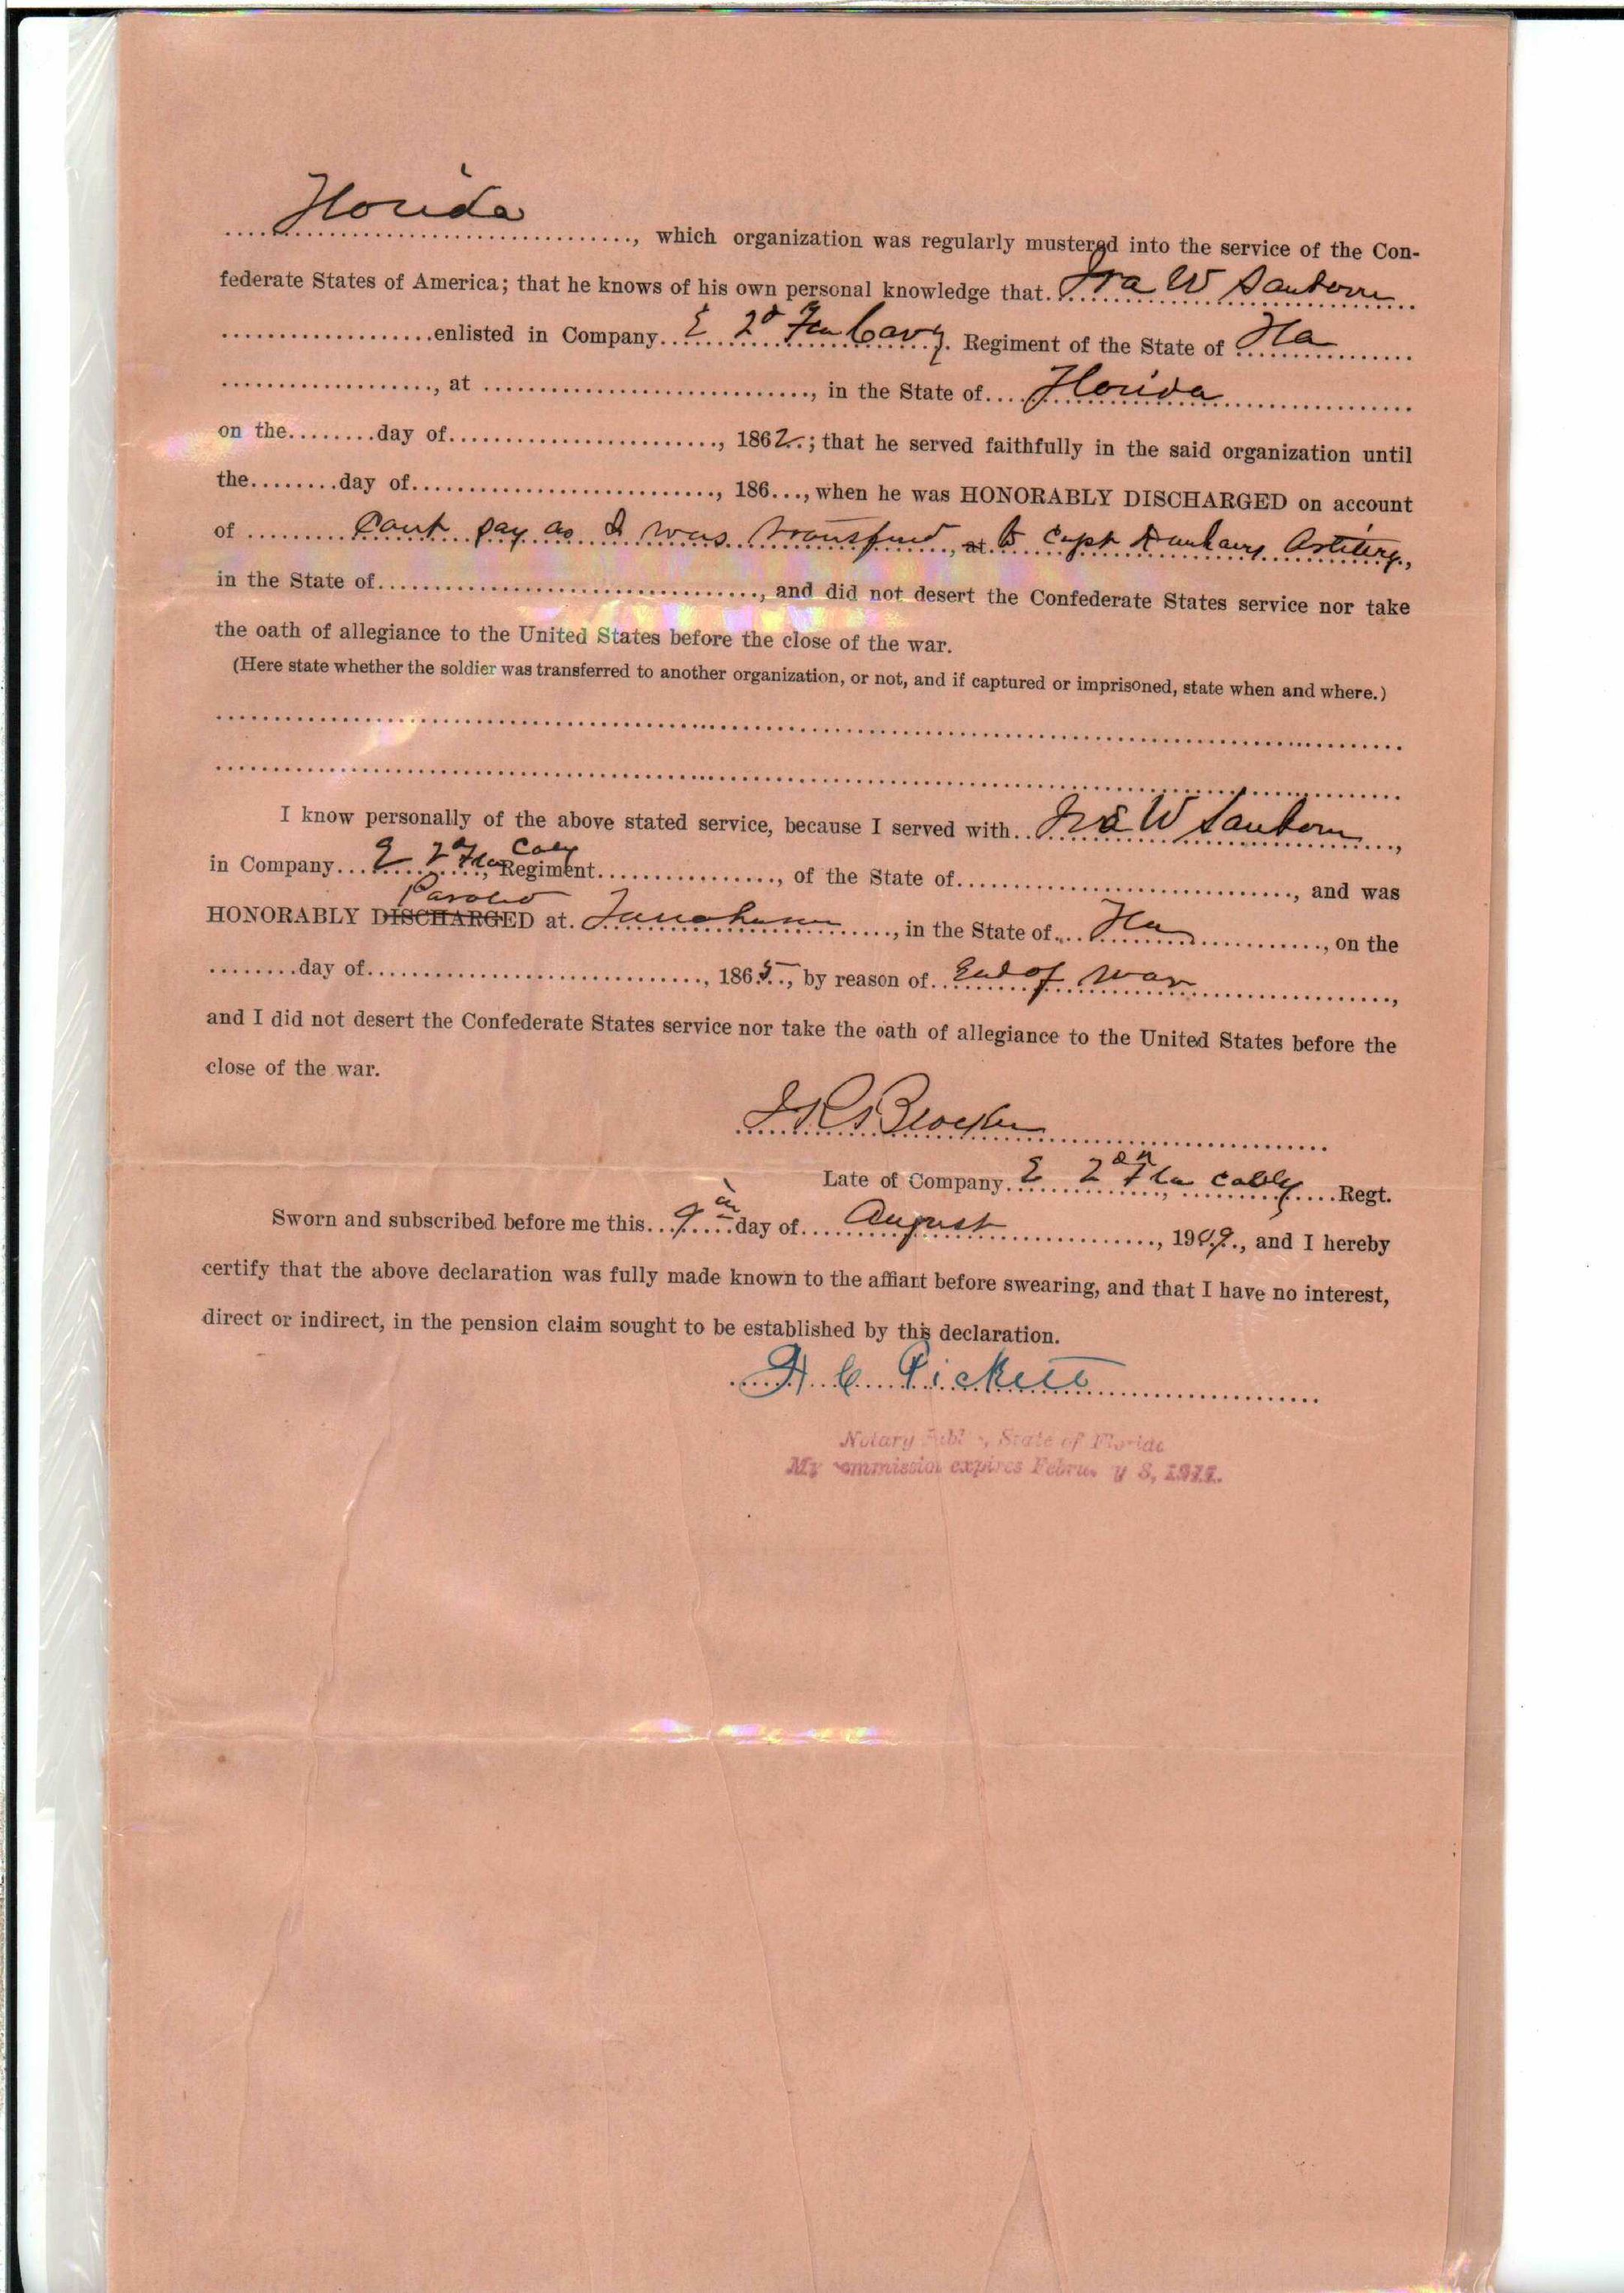 Florida, which organization was regularly mustered into the service of the Con-
federate States of America; that he knows of his own personal knowledge that Ira W Sanborn
enlisted in Company E 2d Fla Cavy Regiment of the State of Fla
, at , in the State of Florida
on the day of , 1862; that he served faithfully in the said organization until
the day of , 186 , when he was HONORABLY DISCHARGED on account
of Cant say as I was transfered, at to Capt Artilery,
in the State of , and did not desert the Confederate States service nor take
the oath of allegiance to the United States before the close of the war.
(Here state whether the soldier was transferred to another organization, or not, and if captured or imprisoned, state when and where.)
I know personally of the above stated service, because I served with Ira W Sanborn,
Caly
in Company E 2d Fla, Regiment , of the State of , and was
Paroled
HONORABLY DISCHARGED at , in the State of Fla, on the
day of , 1865, by reason of End of War,
and I did not desert the Confederate States service nor take the oath of allegiance to the United States before the
close of the war.
Blocker
Late of Company E 2nd Fla Cably Regt.
Sworn and subscribed before me this 9th day of August, 1909, and I hereby
certify that the above declaration was fully made known to the affiart before swearing, and that I have no interest,
direct or indirect, in the pension claim sought to be established by this declaration.
H. C. Pickett
Notary Public, State of Florida
My commission expires February 8, 1911.